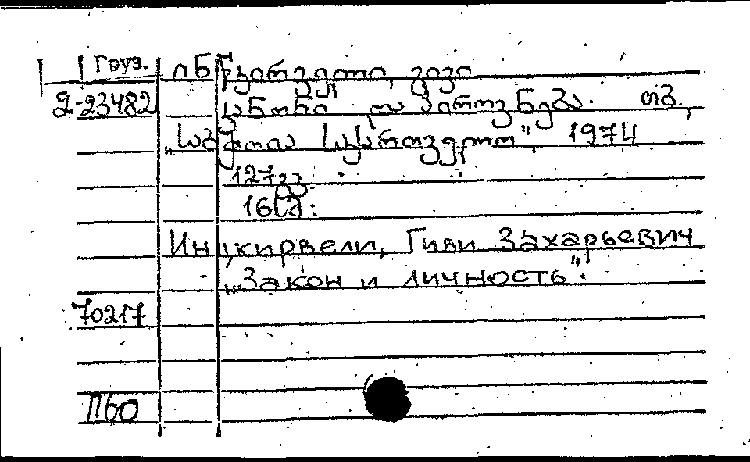 Груз.
ინწკირველი, გივი
2-23482 კანონი და პიროვნება. თბ.,
„საბჭოთა საქართველო", 1974
127გვ.
16სმ.
Инцкирвели, Гиви Захарьевич
„Закон и личность".
70217
ПБО